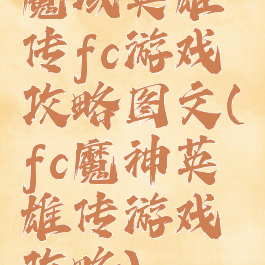 魔域英雄
传fc游戏
攻略图文(
fc魔神英
雄传游戏
攻略)